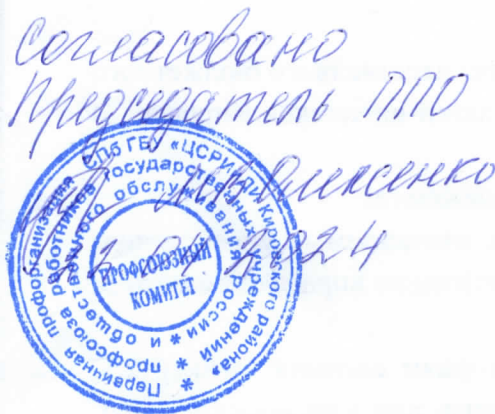 Согласовано
Председатель ППО
Алексенко
2024
Первичная профорганизация СПб ГБУ «ЦСРИДИ Кировского района»
профсоюза работников государственных учреждений
и общественного обслуживания России
ПРОФСОЮЗНЫЙ
КОМИТЕТ